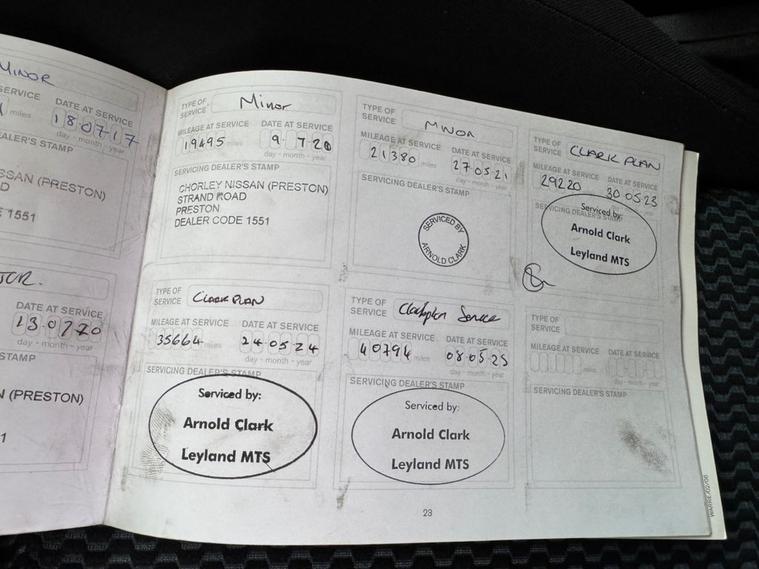 MINOR
SERVICE
DATE AT SERVICE
miles
18 07 17
day - month - year
DEALER'S STAMP
SSAN (PRESTON)
D
E 1551
DATE AT SERVICE
13 02 20
day - month - year
STAMP
N (PRESTON)
1
TYPE OF SERVICE
Minor
MILEAGE AT SERVICE
DATE AT SERVICE
19495 miles
9 7 20
day - month - year
SERVICING DEALER'S STAMP
CHORLEY NISSAN (PRESTON)
STRAND ROAD
PRESTON
DEALER CODE 1551
TYPE OF SERVICE
MINOR
MILEAGE AT SERVICE
DATE AT SERVICE
21380 miles
27 05 21
day - month - year
SERVICING DEALER'S STAMP
SERVICED BY
ARNOLD CLARK
TYPE OF SERVICE
CLARK PLAN
MILEAGE AT SERVICE
DATE AT SERVICE
29220
30 05 23
SERVICING DEALER'S STAMP
Serviced by:
Arnold Clark
Leyland MTS
TYPE OF SERVICE
CLARK PLAN
MILEAGE AT SERVICE
DATE AT SERVICE
35664 miles
24 05 24
day - month - year
SERVICING DEALER'S STAMP
Serviced by:
Arnold Clark
Leyland MTS
TYPE OF SERVICE
Service
MILEAGE AT SERVICE
DATE AT SERVICE
40794 miles
08 05 25
day - month - year
SERVICING DEALER'S STAMP
Serviced by:
Arnold Clark
Leyland MTS
TYPE OF SERVICE
MILEAGE AT SERVICE
DATE AT SERVICE
miles
day - month - year
SERVICING DEALER'S STAMP
23